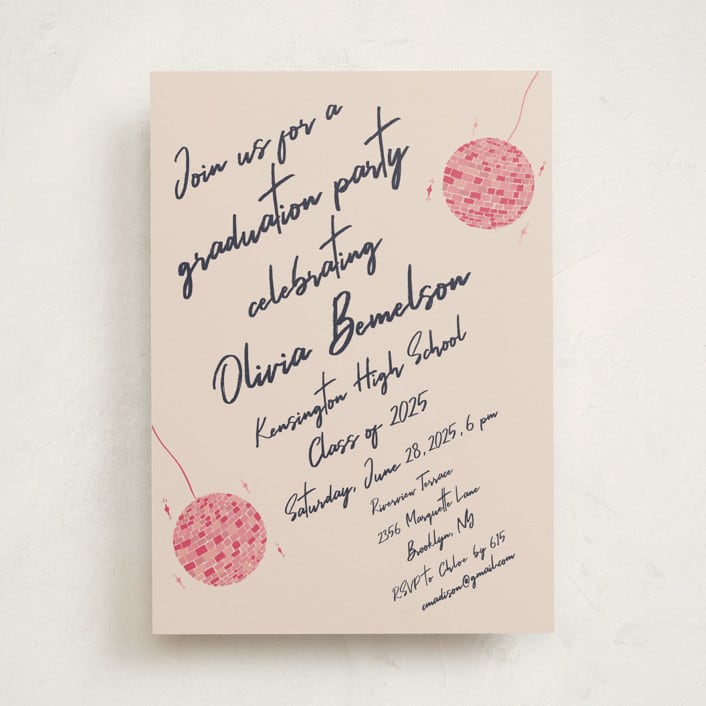 Join us for a
graduation party
celebrating
Olivia Bemelson
Kensington High School
Class of 2025
Saturday, June 28, 2025, 6 pm
Riverview Terrace
2356 Marquette Lane
Brooklyn, NY
RSVP to Chloe by 615
cmadison@gmail.com